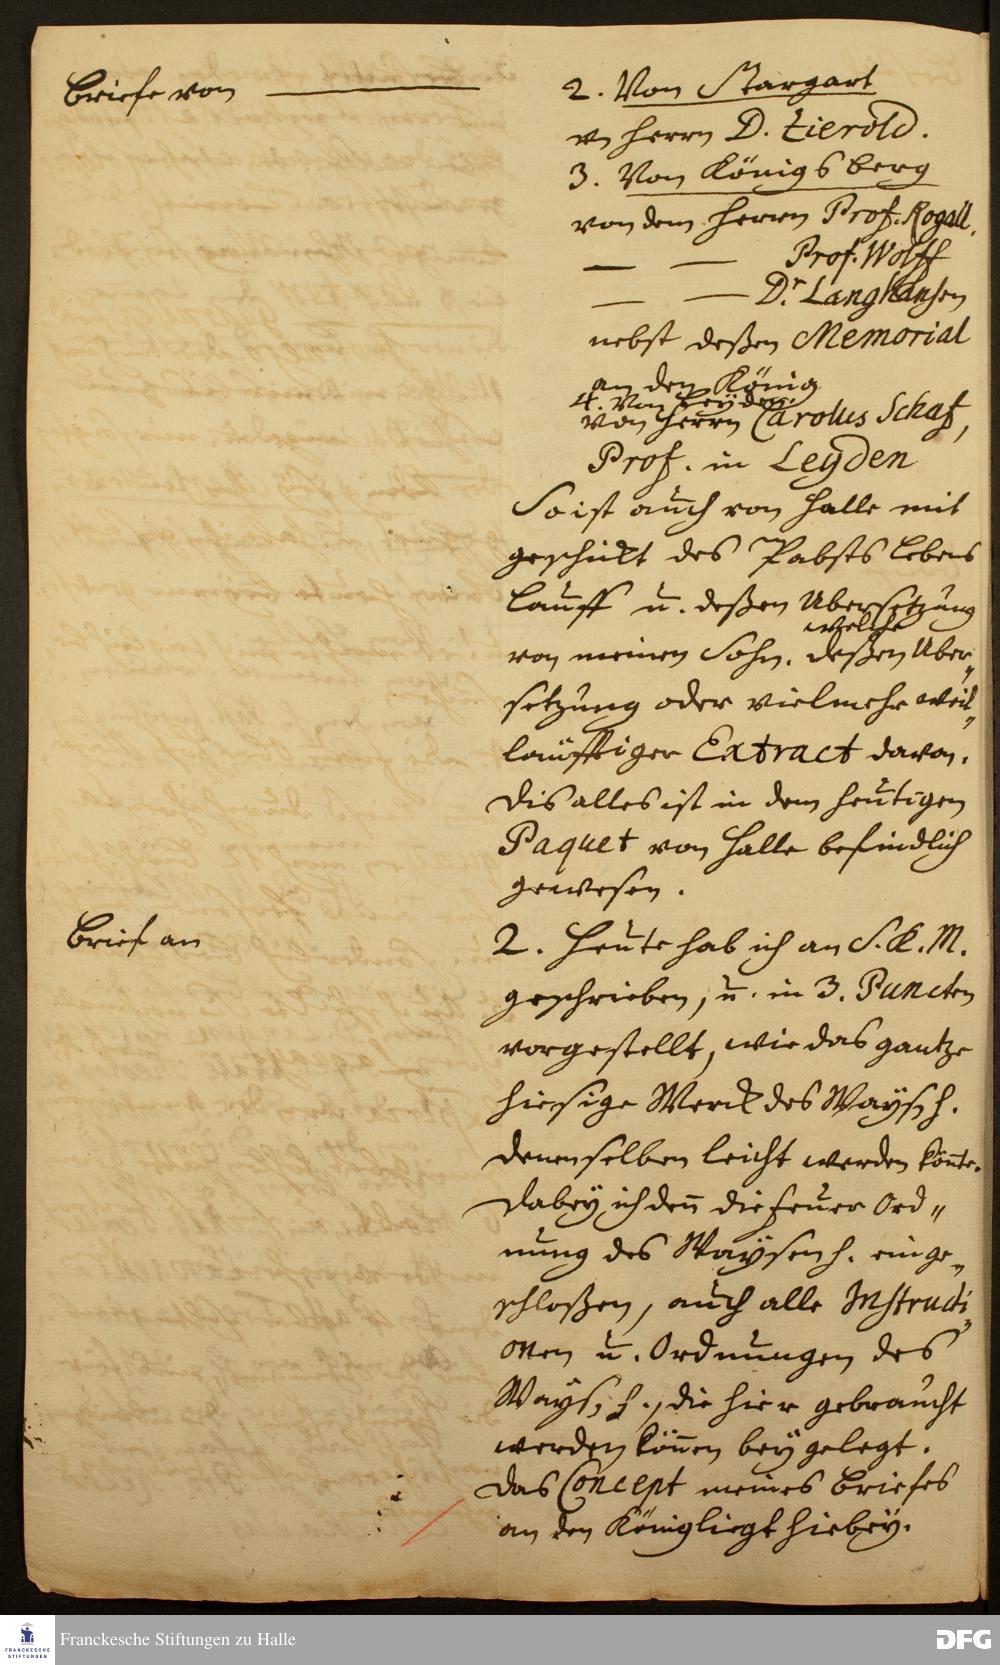 Briefe von
2. Von Stargart
v. Herrn D. Zierold.
3. Von Königsberg
von dem Herrn Prof. Rogall,
— — Prof. Wolff
— — Dr. Langhansen
nebst deßen Memorial
an den König
4. Von Leyden
von Herrn Carolus Schaf,
Prof. in Leyden
So ist auch von Halle mit
geschickt des Pabsts Lebens
Lauff u. deßen Ubersetzung
welche
von meinen Sohn. deßen Uber„
setzung oder vielmehr weit„
läufftiger Extract davon.
Dis alles ist in dem heutigen
Paquet von Halle befindlich
gewesen.
Brief an
2. Heute hab ich an S. K. M.
geschrieben, u. in 3. Puncten
vorgestellt, wie das gantze
hiesige Werck des Waysh.
denenselben leicht werden könte.
Dabey ich denn die feuer Ord„
nung des Waysenh. einge„
schloßen, auch alle Instructi„
onen u. Ordnungen des
Waysh., die hier gebraucht
werden können beygelegt.
Das Concept meines Briefes
an den König liegt hiebey.
FRANCKESCHE
STIFTUNGEN
Franckesche Stiftungen zu Halle
DFG